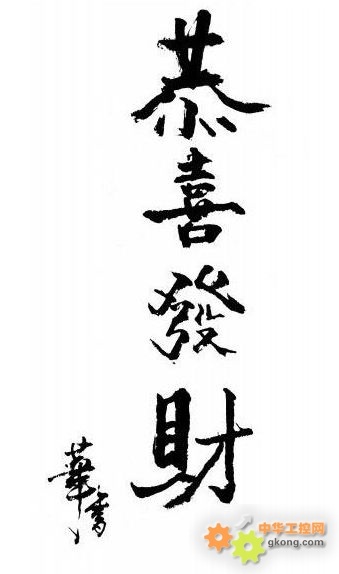 恭喜發財
華書
中华工控网
gkong.com